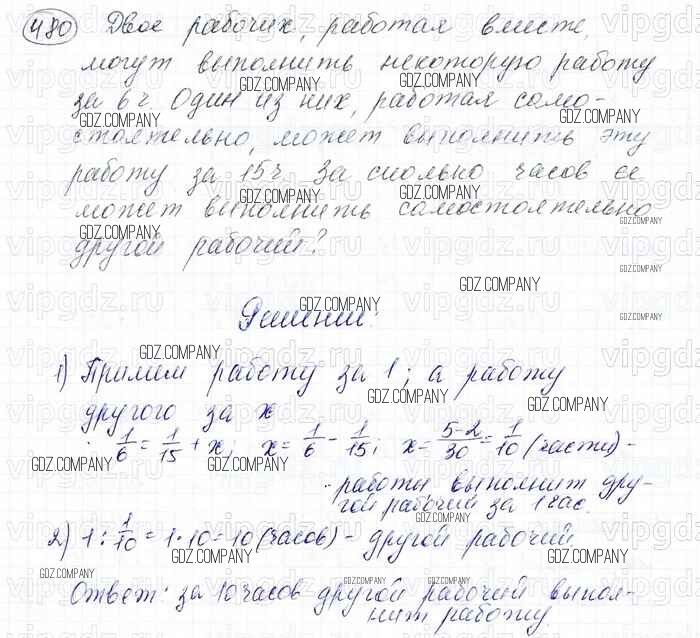 480 Двое рабочих, работая вместе,
могут выполнить некоторую работу
за 6 ч. Один из них, работая само-
стоятельно, может выполнить эту
работу за 15 ч. За сколько часов ее
может выполнить самостоятельно
другой рабочий?
Решение:
1) Примем работу за 1; а работу
другого за x
1/6 = 1/15 + x; x = 1/6 - 1/15; x = 5-2/30 = 1/10 (части) -
работы, выполнит дру-
гой рабочий за 1 час.
2) 1 : 1/10 = 1·10 = 10 (часов) - другой рабочий
Ответ: за 10 часов другой рабочий выпол-
нит работу.
GDZ.COMPANY
vipgdz.ru